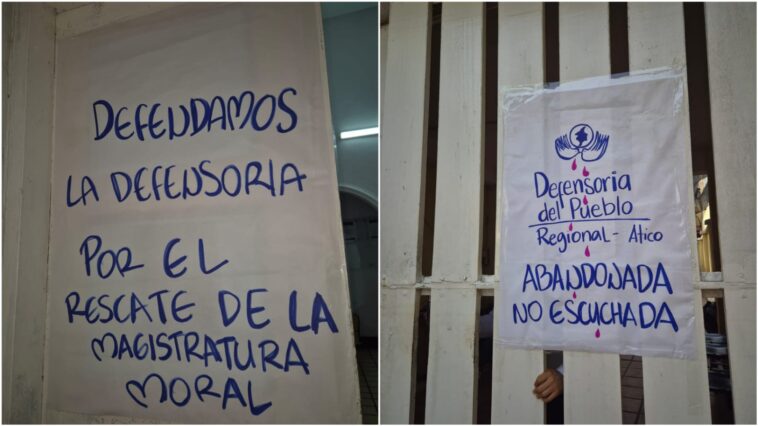 DEFENDAMOS
LA DEFENSORIA
POR EL
RESCATE DE LA
MAGISTRATURA
MORAL
Defensoria
del Pueblo
Regional - Atico
ABANDONADA
NO ESCUCHADA